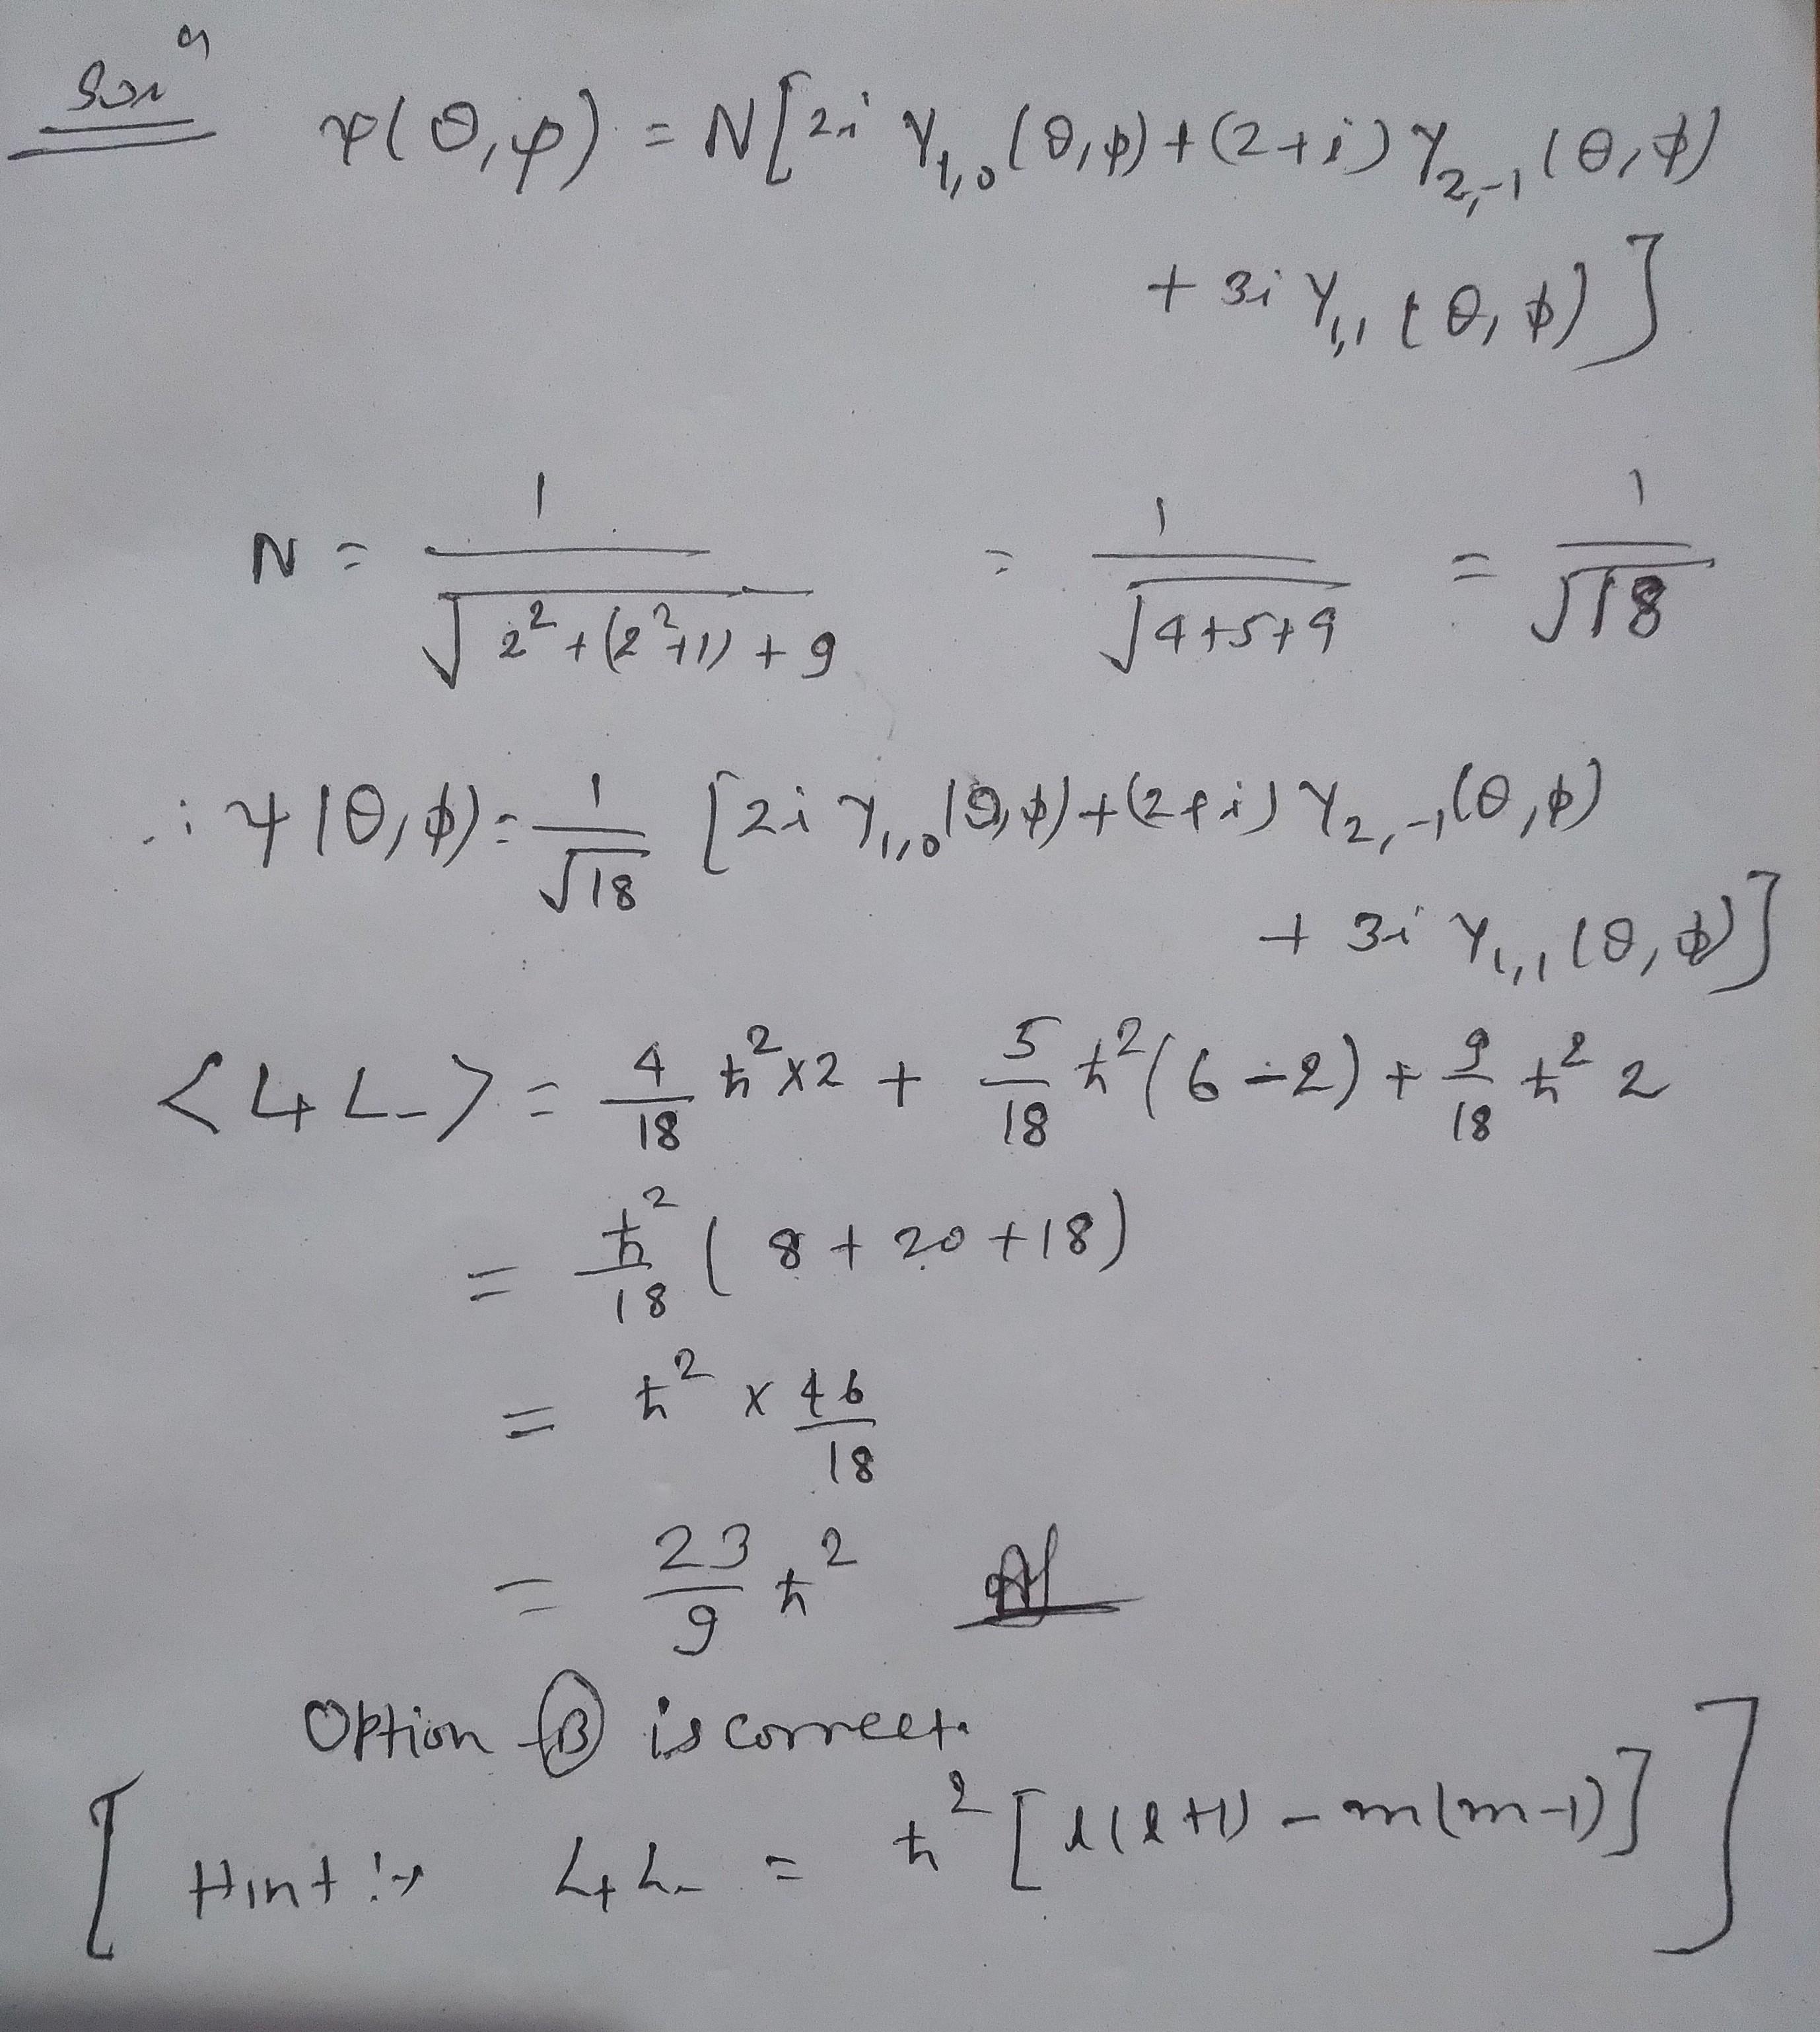 Solⁿ ψ(θ,φ) = N[2i Y₁,₀(θ,φ) + (2+i) Y₂,₋₁(θ,φ)
+ 3i Y₁,₁(θ,φ)]
N = 1/√(2²+(2²+1)+9) = 1/√(4+5+9) = 1/√18
∴ ψ(θ,φ) = 1/√18 [2i Y₁,₀(θ,φ) + (2+i) Y₂,₋₁(θ,φ)
+ 3i Y₁,₁(θ,φ)]
<L₊L₋> = 4/18 ħ²×2 + 5/18 ħ²(6-2) + 9/18 ħ² 2
= ħ²/18 (8+20+18)
= ħ² × 46/18
= 23/9 ħ²
Option Ⓑ is correct.
[Hint :→ L₊L₋ = ħ²[l(l+1) - m(m-1)]]